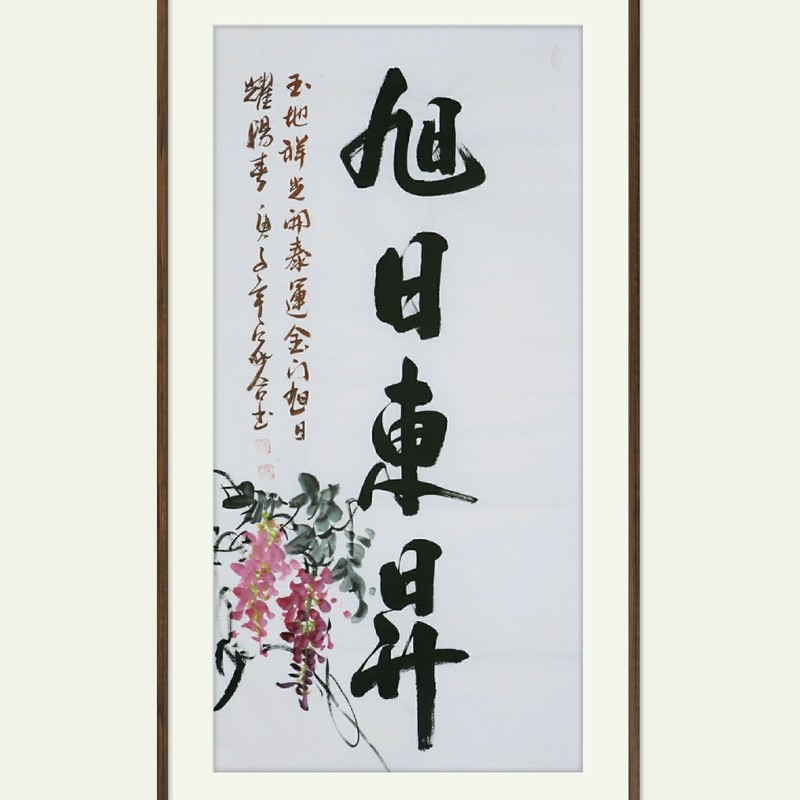 旭日東昇
玉地祥光開泰運金门旭日
耀陽春庚子年